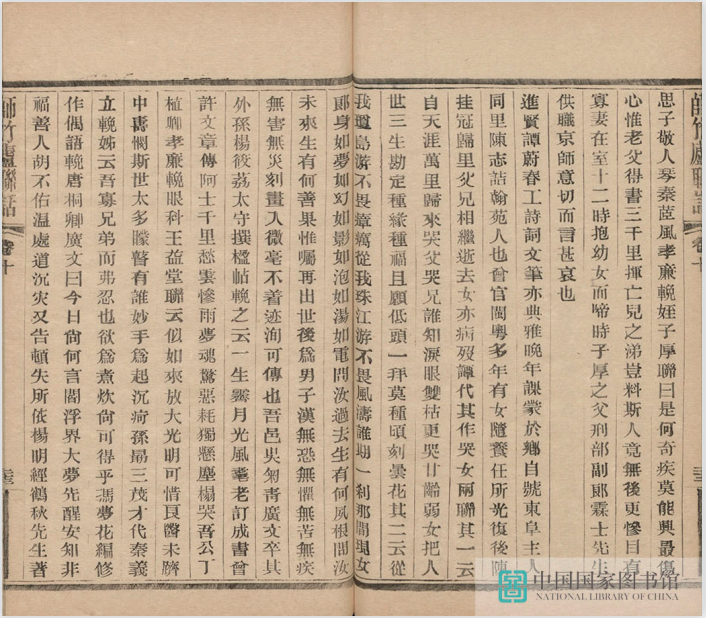 師竹廬聯話
卷十
三三
思子敬人琴秦蓝風孝廉輓姪子厚聯曰是何奇疾莫能興最傷
心惟老父得書三千里揮亡兒之涕豈料斯人竟無後更慘目真
寡妻在室十二時抱幼女而啼時子厚之父刑部副郎霖士先生
供職京師意切而言甚哀也
進賢譚蔚春工詩詞文筆亦典雅晚年課蒙於鄉自號東皐主人
同里陳志喆翰苑人也曾官閩粵多年有女隨養任所光復後陳
挂冠歸里父兄相繼逝去女亦病歿譚代其作哭女兩聯其一云
自天涯萬里歸來哭父哭兄誰知淚眼雙枯更哭甘齡弱女把人
世三生勘定種緣種福且願低頭一拜莫種頃刻曇花其二云從
我瓊島游不畏瘴癘從我珠江游不畏風濤誰期一剎那間現女
郎身如夢如幻如影如泡如湯如電問汝過去生有何夙根問汝
未來生有何善果惟囑再出世後爲男子漢無恐無懼無苦無疾
無害無災刻畫入微毫不着迹洵可傳也吾邑吳匊青廣文卒其
外孫楊筱荔太守撰楹帖輓之云一生霽月光風耄老訂成書曾
許文章傳阿士千里愁雲慘雨夢魂驚惡耗獨懸塵榻哭吾公丁
植卿孝廉輓眼科王益堂聯云似如來放大光明可惜良醫未躋
中壽憫斯世太多矇瞽有誰妙手爲起沉疴孫勗三茂才代秦義
立輓姊云吾寡兄弟而弗忍也欲爲煮炊尙可得乎馮夢花編修
作偶語輓唐桐卿廣文曰今日尙何言閻浮界大夢先醒安知非
福善人胡不佑温處道沉灾又告頓失所依楊明經鶴秋先生著
師竹廬聯話
卷十
三三
中国国家图书馆
NATIONAL LIBRARY OF CHINA